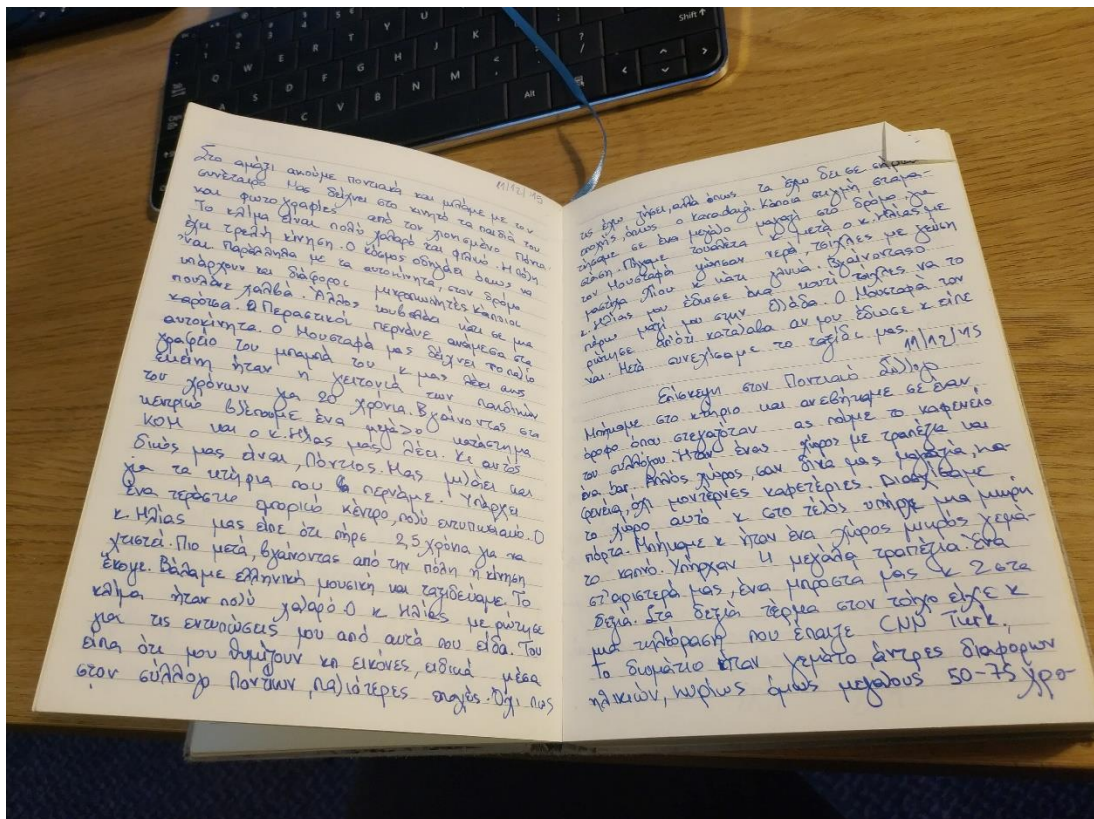 11/12/15
Στο αμάξι ακούμε ποντιακά και μιλάμε με τον
συνέταιρο. Μας δείχνει στο κινητό τα παιδιά του
και φωτογραφίες από τον χιονισμένο Πόντο.
Το κλίμα είναι πολύ χαλαρό και φιλικό. Η πόλη
έχει τρελή κίνηση. Ο κόσμος οδηγάει όπως να
'ναι. Παράλληλα με τα αυτοκίνητα, στον δρόμο
υπάρχουν και διάφοροι μικροπωλητές. Κάποιοι
πουλάνε χαλβά. Άλλος κουβαλάει κάτι σε μια
καρότσα. Περαστικοί περνάνε ανάμεσα στα
αυτοκίνητα. Ο Μουσταφά μας δείχνει το παλιό
γραφείο του μπαμπά του κ μας λέει πως
εκείνη ήταν η γειτονιά των παιδικών
του χρόνων για 20 χρόνια. Βγαίνοντας στα
κεντρικά βλέπουμε ένα μεγάλο κατάστημα
ΚΟΜ και ο κ. Ηλίας μας λέει. Κι αυτός
δικός μας είναι, Πόντιος. Μας μιλάει και
για τα κτίρια που περνάμε. Υπάρχει
ένα τεράστιο εμπορικό κέντρο, πολύ εντυπωσιακό. Ο
κ. Ηλίας μας είπε ότι πήρε 2,5 χρόνια για να
χτιστεί. Πιο μετά, βγαίνοντας από την πόλη η κίνηση
έκοψε. Βάλαμε ελληνική μουσική και ταξιδεύαμε. Το
κλίμα ήταν πολύ χαλαρό. Ο κ Ηλίας με ρώτησε
για τις εντυπώσεις μου από αυτά που είδα. Του
είπα ότι μου θυμίζουν κη εικόνες, ειδικά μέσα
στον σύλλογο Ποντίων, παλιότερες εποχές. Όχι πως
τις έχω ζήσει, αλλά όπως τα έχω δει σε
εποχής, όπως ο Karadayi. Κάποια στιγμή σταμα-
τήσαμε σε ένα μεγάλο μαγαζί στο δρόμο, για
στάση. Πήγαμε τουαλέτα κ μετά ο κ. Ηλίας με
τον Μουσταφά ψώνισαν νερά, τσίχλες με γεύση
μαστίχα Χίου κ κάτι γλυκά. Βγαίνοντας ο
κ. Ηλίας μου έδωσε ένα κουτί τσίχλες να το
πάρω μαζί μου στην Ελλάδα. Ο Μουσταφά τον
ρώτησε απ'ότι κατάλαβα αν μου έδωσε κ είπε
ναι. Μετά συνεχίσαμε το ταξίδι μας.
11/12/15
Επίσκεψη στον Ποντιακό Σύλλογο
Μπήκαμε στο κτήριο και ανεβήκαμε σε έναν
όροφο όπου στεγαζόταν ας πούμε το καφενείο
του συλλόγου. Ήταν ένας χώρος με τραπέζια και
ένα bar. Απλός χώρος, σαν δικά μας μαγαζιά, κα-
φενεία, όχι μοντέρνες καφετέριες. Διασχίσαμε
το χώρο αυτό κ στο τέλος υπήρχε μια μικρή
πόρτα. Μπήκαμε κ ήταν ένα χώρος μικρός γεμά-
το καπνό. Υπήρχαν 4 μεγάλα τραπέζια. Ένα
στ'αριστερά μας, ένα μπροστά μας κ 2 στα
δεξιά. Στα δεξιά τέρμα στον τοίχο είχε κ
μια τηλεόραση που έπαιζε CNN Turk.
Το δωμάτιο ήταν γεμάτο άντρες διαφόρων
ηλικιών, κυρίως όμως μεγάλους 50-75 χρο-
Shift
Q W E R T Y U
A S D F G H J K
C V B N M
Alt